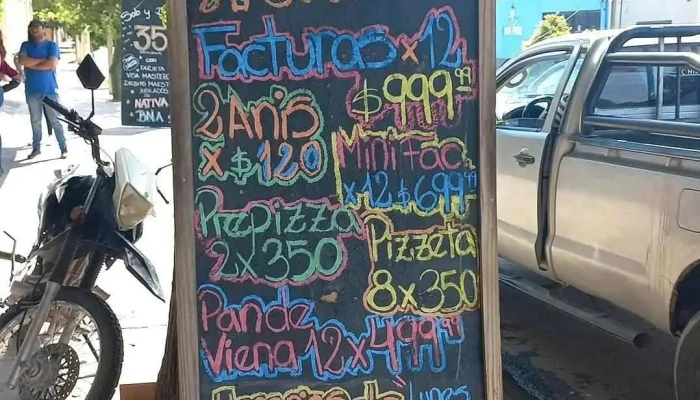 Facturas x 12
$999.99
2 Anis
x $120
Mini Fac
x12 $699.99
Prepizza
2x350
Pizzeta
8x350
Pan de
Viena 12x499.99
Lunes
35
NATIVA
BNA